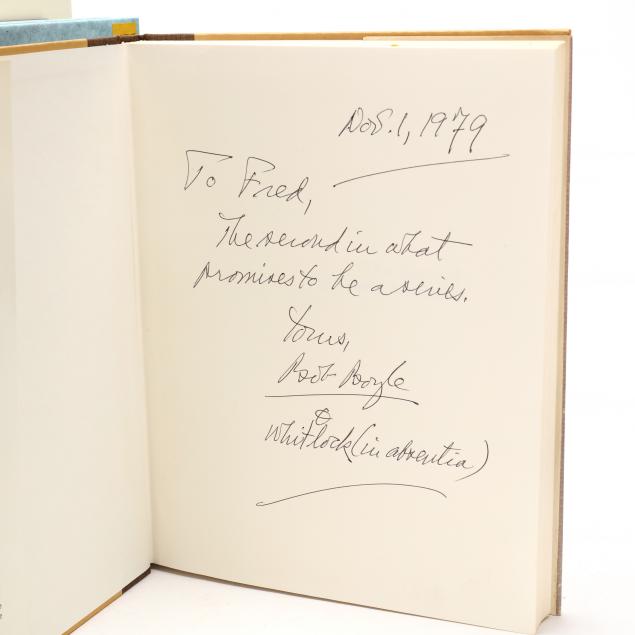 Nov. 1, 1979
To Fred,
The second in what
promises to be a series.
Yours,
Bob Boyle
&
Whitlock (in absentia)